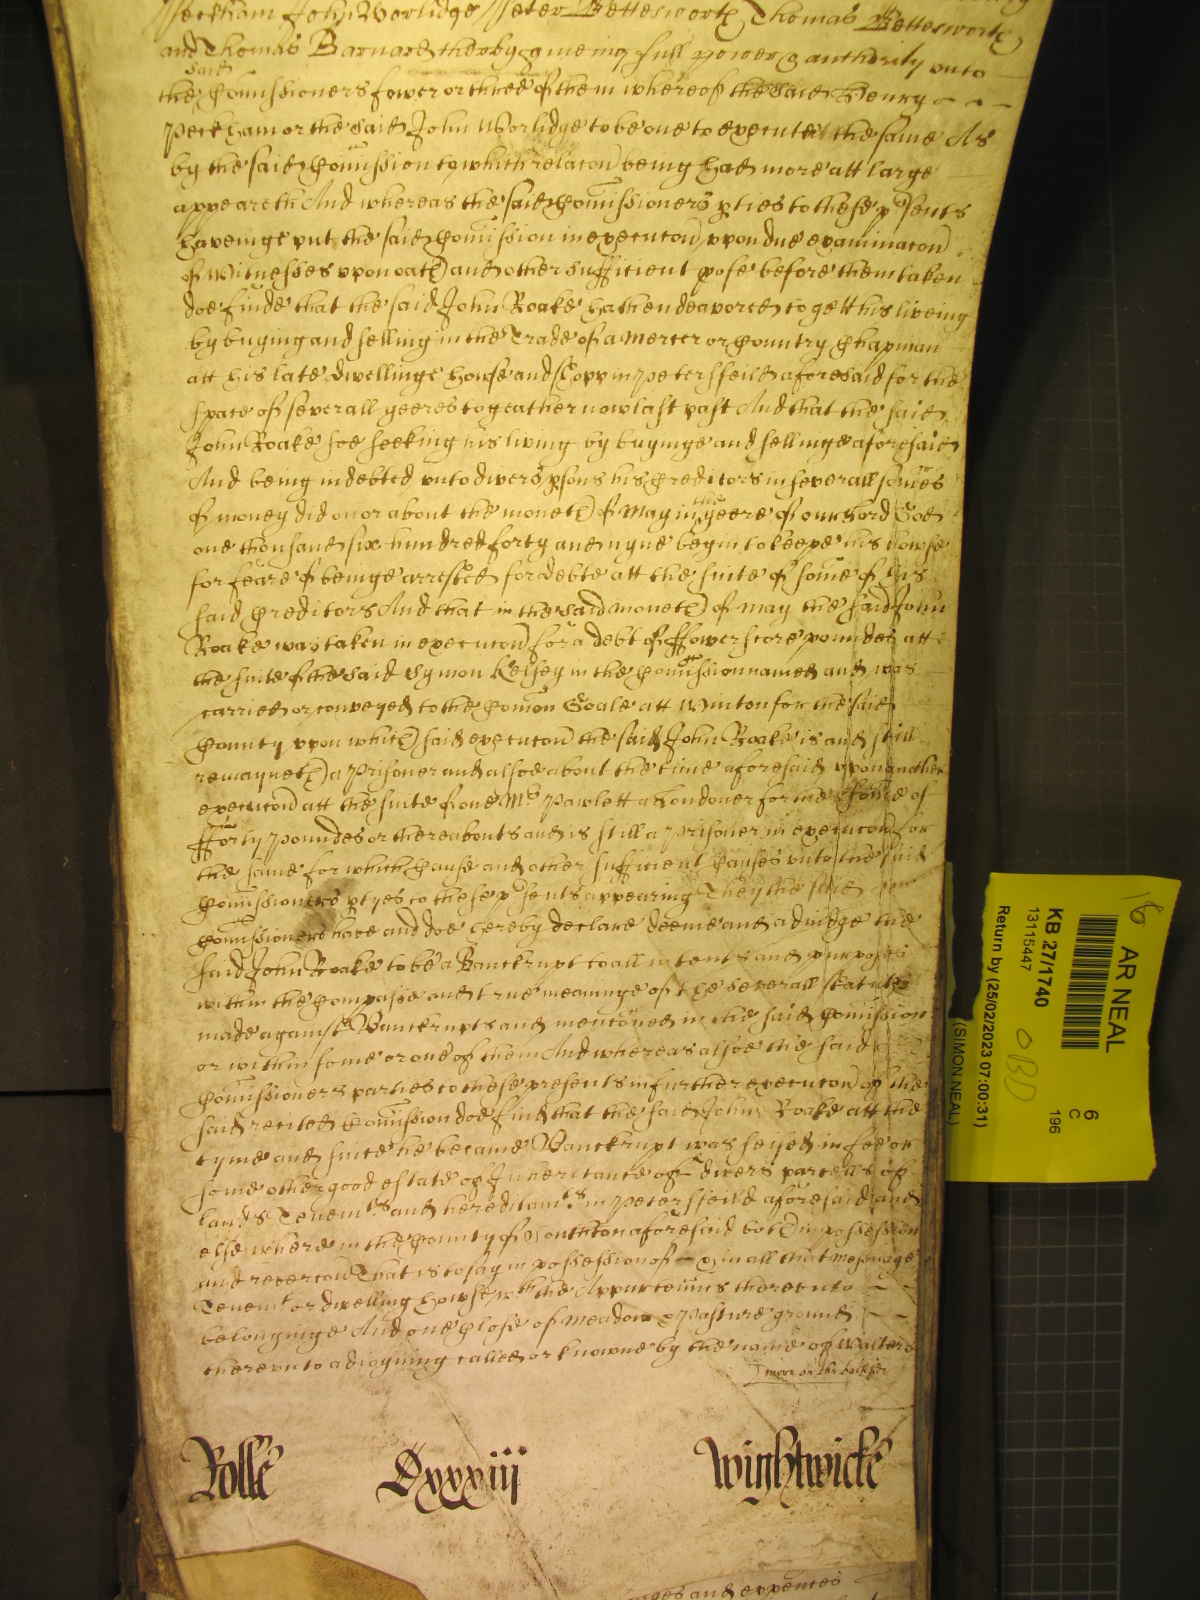 Peckham John Worlidge Peter Bettesworth Thomas Bettesworth
and Thomas Barnard therby giveing full power & authority unto
said
the Comissioners fower or three of them whereof the said Henry
Peckham or the said John Worlidge to be one to execute the same As
by the said Comission to which relacon being had more att large
appeareth And whereas the said Comissioners pties to these psents
haveinge put the said Comission in execucon upon due examinacon
of Witnesses upon oath and other sufficient pofe before them taken
doe finde that the said John Roake hath endeavored to gett his liveing
by buying and selling in the Trade of a Mercer or Country Chapman
att his late dwellinge howse and shopp in Petersfeild aforesaid for the
space of severall yeeres togeather now last past And that the said
John Roake soe seeking his living by buyinge and sellinge aforesaid
And being indebted unto divers psons his Creditors in severall somes
of money did on or about the moneth of May in the yeere of our Lord God
one thousand six hundred forty and nyne begin to keepe his howse
for feare of beinge arrested for debte att the suite of some of his
said Creditors And that in the said moneth of May the said John
Roake was taken in execucon for a debt of ffowerscore poundes att
the suite of the said Symon Kelsey in the Comission named and was
carried or conveyed to the Comon Goale att Winton for the said
County upon which said execucon the said John Roake is and still
remayneth a Prisoner and alsoe about the time aforesaid upon another
execucon att the suite of one Mr Pawlett a Londoner for the some of
fforty Poundes or thereabouts and is still a Prisoner in execucon for
the same for which Cause and other sufficient Causes unto the said
Comissioners ptyes to these psents appearing They the said
Comissioners have and doe hereby declare deeme and adiudge the
said John Roake to be a Banckrupt to all intents and purposes
within the Compasse and true meaninge of the severall statutes
made against Banckrupts and menconed in the said Comission
or within some or one of them And whereas alsoe the said
Comissioners parties to these presents in further execucon of the
said recited Comission doe find that the said John Roake att the
tyme and since he became Banckrupt was seized in fee or
some other good estate of Inheritance of divers parcells of
lands Tenemts and hereditamts in Petersfeild aforesaid and
elsewhere in the County of Southton aforesaid both in possession
and revercon That is to say in possession of & in all that Mesuage
Tenemt or dwelling howse wth the Appurtennes thereunto
belonginge And one Close of meadow & Pasture ground
thereunto adioyning called or knowne by the name of Walters
more on the backside
Rolle Cxxxiij Wightwicke
and expences
AR NEAL
6
C
196
KB 27/1740
13115447
Return by (25/02/2023 07:00:31)
(SIMON NEAL)
OBD